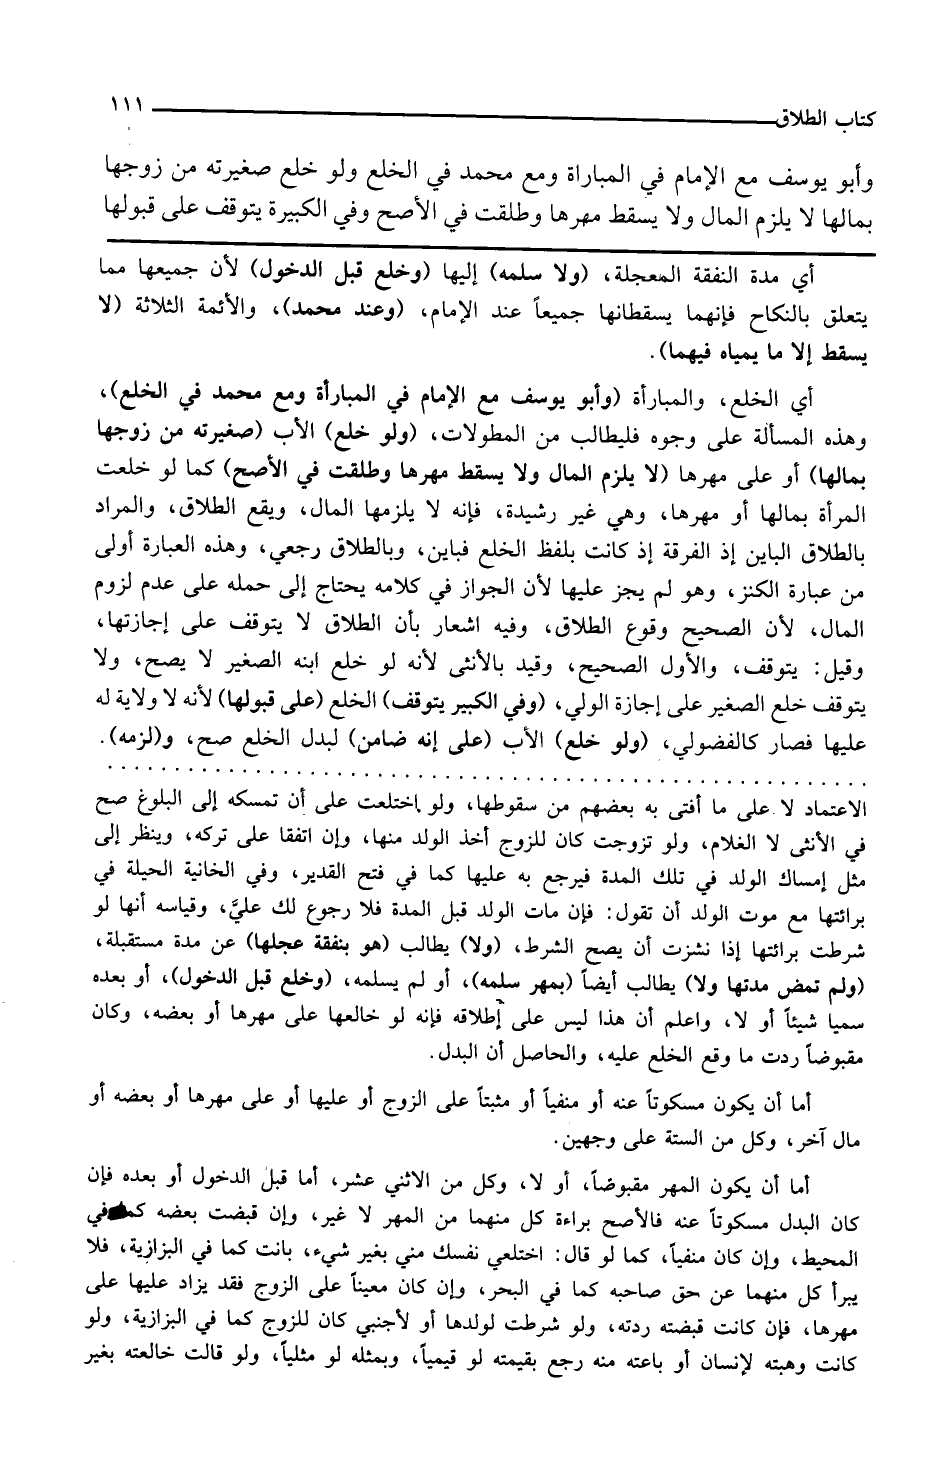 كتاب الطلاق ١١١
وأبو يوسف مع الإمام في المباراة ومع محمد في الخلع ولو خلع صغيرته من زوجها
بمالها لا يلزم المال ولا يسقط مهرها وطلقت في الأصح وفي الكبيرة يتوقف على قبولها
أي مدة النفقة المعجلة، (ولا سلمه) إليها (وخلع قبل الدخول) لأن جميعها مما
يتعلق بالنكاح فإنهما يسقطانها جميعاً عند الإمام، (وعند محمد)، والأئمة الثلاثة (لا
يسقط إلا ما يمياه فيهما).
أي الخلع، والمبارأة (وأبو يوسف مع الإمام في المبارأة ومع محمد في الخلع)،
وهذه المسألة على وجوه فليطالب من المطولات، (ولو خلع) الأب (صغيرته من زوجها
بمالها) أو على مهرها (لا يلزم المال ولا يسقط مهرها وطلقت في الأصح) كما لو خلعت
المرأة بمالها أو مهرها، وهي غير رشيدة، فإنه لا يلزمها المال، ويقع الطلاق، والمراد
بالطلاق الباين إذ الفرقة إذ كانت بلفظ الخلع فباين، وبالطلاق رجعي، وهذه العبارة أولى
من عبارة الكنز، وهو لم يجز عليها لأن الجواز في كلامه يحتاج إلى حمله على عدم لزوم
المال، لأن الصحيح وقوع الطلاق، وفيه اشعار بأن الطلاق لا يتوقف على إجازتها،
وقيل: يتوقف، والأول الصحيح، وقيد بالأنثى لأنه لو خلع ابنه الصغير لا يصح، ولا
يتوقف خلع الصغير على إجازة الولي، (وفي الكبير يتوقف) الخلع (على قبولها) لأنه لا ولاية له
عليها فصار كالفضولي، (ولو خلع) الأب (على إنه ضامن) لبدل الخلع صح، و(لزمه).
الاعتماد لا على ما أفتى به بعضهم من سقوطها، ولو اختلعت على أن تمسكه إلى البلوغ صح
في الأنثى لا الغلام، ولو تزوجت كان للزوج أخذ الولد منها، وإن اتفقا على تركه، وينظر إلى
مثل إمساك الولد في تلك المدة فيرجع به عليها كما في فتح القدير، وفي الخانية الحيلة في
برائتها مع موت الولد أن تقول: فإن مات الولد قبل المدة فلا رجوع لك عليَّ، وقياسه أنها لو
شرطت برائتها إذا نشزت أن يصح الشرط، (ولا) يطالب (هو بنفقة عجلها) عن مدة مستقبلة،
(ولم تمض مدتها ولا) يطالب أيضاً (بمهر سلمه)، أو لم يسلمه، (وخلع قبل الدخول)، أو بعده
سميا شيئاً أو لا، واعلم أن هذا ليس على إطلاقه فإنه لو خالعها على مهرها أو بعضه، وكان
مقبوضاً ردت ما وقع الخلع عليه، والحاصل أن البدل.
أما أن يكون مسكوتاً عنه أو منفياً أو مثبتاً على الزوج أو عليها أو على مهرها أو بعضه أو
مال آخر، وكل من الستة على وجهين.
أما أن يكون المهر مقبوضاً، أو لا، وكل من الاثني عشر، أما قبل الدخول أو بعده فإن
كان البدل مسكوتاً عنه فالأصح براءة كل منهما من المهر لا غير، وإن قبضت بعضه كما في
المحيط، وإن كان منفياً، كما لو قال: اختلعي نفسك مني بغير شيء، بانت كما في البزازية، فلا
يبرأ كل منهما عن حق صاحبه كما في البحر، وإن كان معيناً على الزوج فقد يزاد عليها على
مهرها، فإن كانت قبضته ردته، ولو شرطت لولدها أو لأجنبي كان للزوج كما في البزازية، ولو
كانت وهبته لإنسان أو باعته منه رجع بقيمته لو قيمياً، وبمثله لو مثلياً، ولو قالت خالعته بغير